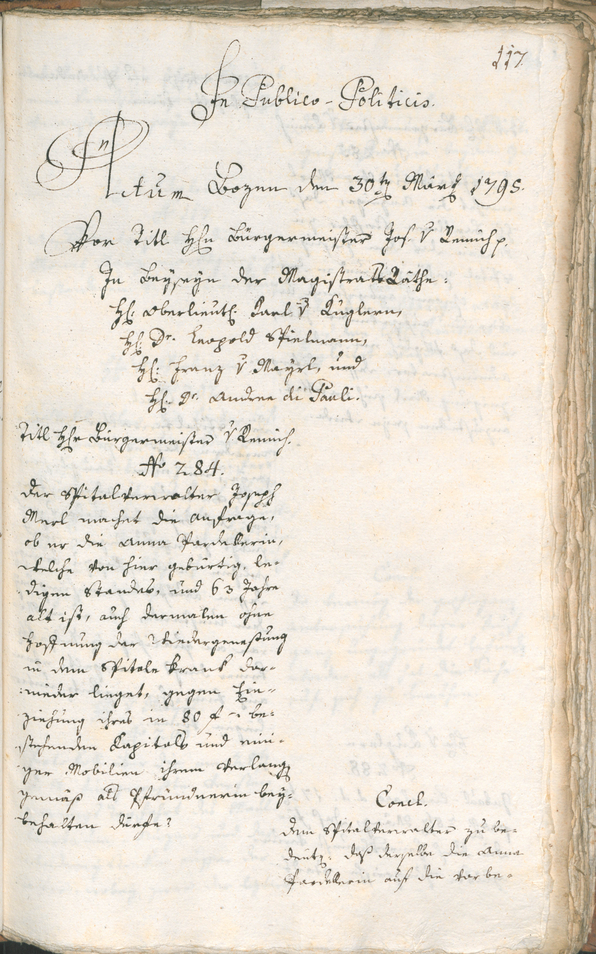 117.
In Publico-Politicis.
Actum Bozen den 30tn März 1795.
Vor Titl. Hhn Bürgermeister Jos. v Remich p.
In Beyseyn der Magistrats Räthe:
Hl: Oberlieut: Karl v Küglern,
Hl: Dr. Leopold Spielmann,
Hl: Franz v Mayrl, und
Hl: Dr. Andree di Pauli.
Titl Hhr Bürgermeister v Remich.
No 284.
Der Spitalverwalter Joseph
Merl machet die Anfrage,
ob er die Anna Pardellerin,
welche von hier gebürtig, le-
digen Standes, und 63 Jahre
alt ist, auch dermalen ohne
Hoffnung der Wiedergenesung
in dem Spitale krank dar-
nieder lieget, gegen Ein-
ziehung ihres in 80 f - be-
stehenden Kapitals und eini-
ger Mobilien ihrem Verlang
gemäß als Pfründnerin bey-
behalten dürfe?
Concl.
dem Spitalverwalter zu be-
deutn, daß derselbe die Anna
Pardellerin auf die vorbe-